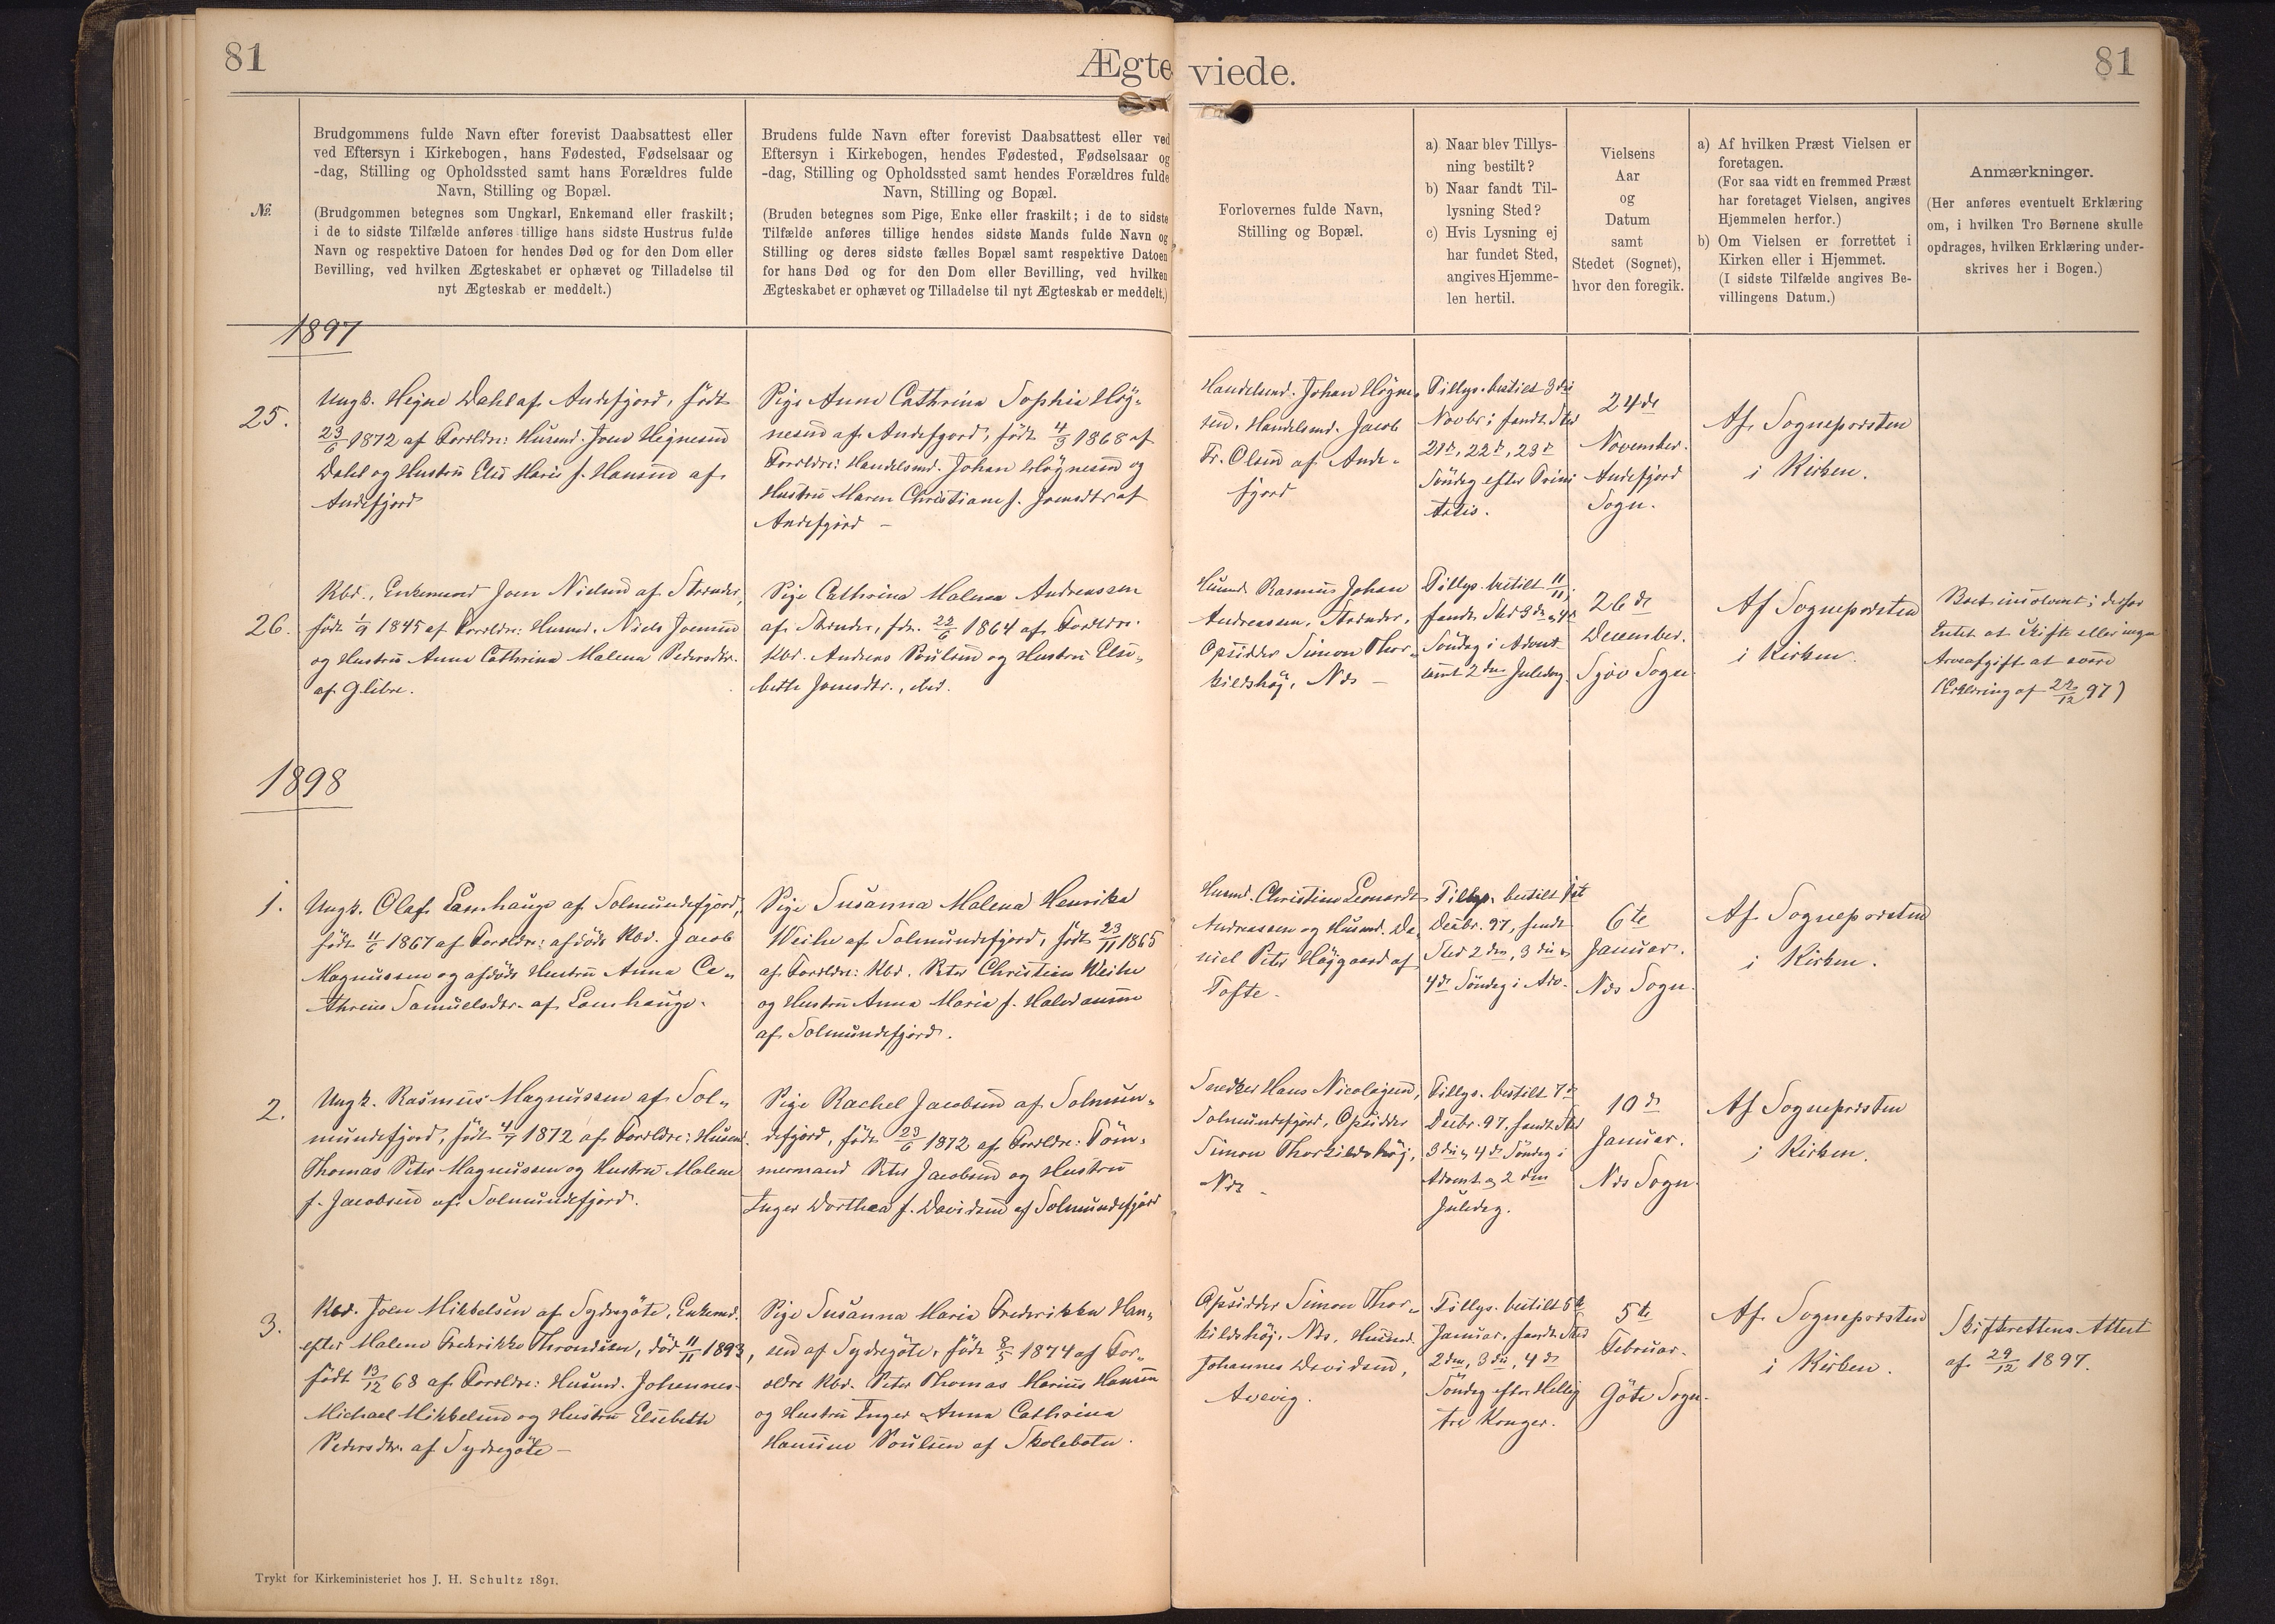 81
Ægte
viede.
81
№
Brudgommens fulde Navn efter forevist Daabsattest eller
ved Eftersyn i Kirkebogen, hans Fødested, Fødselsaar og
-dag, Stilling og Opholdssted samt hans Forældres fulde
Navn, Stilling og Bopæl.
(Brudgommen betegnes som Ungkarl, Enkemand eller fraskilt;
i de to sidste Tilfælde anføres tillige hans sidste Hustrus fulde
Navn og respektive Datoen for hendes Død og for den Dom eller
Bevilling, ved hvilken Ægteskabet er ophævet og Tilladelse til
nyt Ægteskab er meddelt.)
Brudens fulde Navn efter forevist Daabsattest eller ved
Eftersyn i Kirkebogen, hendes Fødested, Fødselsaar og
-dag, Stilling og Opholdssted samt hendes Forældres fulde
Navn, Stilling og Bopæl.
(Bruden betegnes som Pige, Enke eller fraskilt; i de to sidste
Tilfælde anføres tillige hendes sidste Mands fulde Navn og
Stilling og deres sidste fælles Bopæl samt respektive Datoen
for hans Død og for den Dom eller Bevilling, ved hvilken
Ægteskabet er ophævet og Tilladelse til nyt Ægteskab er meddelt.)
Forlovernes fulde Navn,
Stilling og Bopæl.
a) Naar blev Tillys-
ning bestilt?
b) Naar fandt Til-
lysning Sted?
c) Hvis Lysning ej
har fundet Sted,
angives Hjemme-
len hertil.
Vielsens
Aar
og
Datum
samt
Stedet (Sognet),
hvor den foregik.
a) Af hvilken Præst Vielsen er
foretagen.
(For saa vidt en fremmed Præst
har foretaget Vielsen, angives
Hjemmelen herfor.)
b) Om Vielsen er forrettet i
Kirken eller i Hjemmet.
(I sidste Tilfælde angives Be-
villingens Datum.)
Anmærkninger.
(Her anføres eventuelt Erklæring
om, i hvilken Tro Børnene skulle
opdrages, hvilken Erklæring under-
skrives her i Bogen.)
1897
25.
Ungk. Høgne Dahl af Andefjord, født
23/6 1872 af Forældre: Husmd. Joen Høgnesen
Dahl og Hustru Else Marie f. Hansen af
Andefjord
Pige Anne Cathrina Sophia Høg-
nesen af Andefjord, født 4/3 1868 af
Forældre: Handelsmd. Johan Høgnesen og
Hustru Maren Christiane f. Joensdtr af
Andefjord –
Handelsmd. Johan Høgne-
sen, Handelsmd. Jacob
Fr. Olsen af Ande-
fjord
Tillys. bestilt 3die
Novbr; fandt Sted
21de, 22de, 23de
Søndag efter Trini
tatis.
24de
November.
Andefjord
Sogn.
Af Sognepræsten
i Kirken.
26.
Kbd., Enkemand Joen Nielsen af Strænder,
født 1/9 1845 af Forældre: Husmd. Niels Joensen
og Hustru Anna Cathrina Malena Pedersdtr.
af Glibre.
Pige Cathrina Malena Andreassen
af Strænder, fdt. 22/6 1864 af Forældre.
Kbd. Andreas Poulsen og Hustru Else-
beth Joensdtr., ibid.
Husmd Rasmus Johan
Andreassen, Strænder,
Opsidder Simon Thor-
kildshøj, Næs –
Tillys. bestilt 11/11;
fandt Sted 3die, 4de
Søndag i Advent
samt 2den Juledag.
26de
December.
Sjov Sogn.
Af Sognepræsten
i Kirken.
Boet insolvent; derfor
Intet at skifte eller ingen
Arveafgift at svare
(Erklæring af 22/12 97)
1898
1.
Ungk. Olaf Lamhauge af Solmundefjord,
født 11/6 1867 af Forældre: afdøde Kbd. Jacob
Magnussen og afdøde Hustru Anna Ca-
thrine Samuelsdtr. af Lamhauge.
Pige Susanna Malena Henrika
Weihe af Solmundefjord, født 23/11 1865
af Forældre: Kbd. Peter Christian Weihe
og Hustru Anna Maria f. Haldansen
af Solmundefjord.
Husmd. Christian Leonardt
Andreassen og Husmd. Da-
niel Peter Højgaard af
Tofte.
Tillys. bestilt 1ste
Decbr. 97, fandt
Sted 2den, 3die og
4de Søndag i Adv.
6te
Januar.
Næs Sogn.
Af Sognepræsten
i Kirken.
2.
Ungk. Rasmus Magnussen af Sol-
mundefjord, født 4/7 1872 af Forældre: Husmd.
Thomas Peter Magnussen og Hustru Malene
f. Jacobsen af Solmundefjord.
Pige Rachel Jacobsen af Solmun-
defjord, født 23/6 1872 af Forældre: Töm-
mermand Peter Jacobsen og Hustru
Inger Dorthea f. Davidsen af Solmundefjord
Snedker Hans Nicolajsen,
Solmundefjord, Opsidder
Simon Thorkildshöj,
Næs –
Tillys. bestilt 7de
Decbr. 97, fandt Sted
3die, 4de Søndag i
Advent og 2den
Juledag.
10de
Januar.
Næs Sogn.
Af Sognepræsten
i Kirken.
3.
Kbd. Joen Mikkelsen af Sydregöte, Enkemd.
efter Malene Frederikke Throndsen, död 11/11 1893,
født 13/12 68 af Forældre: Husmd. Johannes
Michael Mikkelsen og Hustru Elsebeth
Pedersdtr. af Sydregöte –
Pige Susanna Maria Frederikka Han-
sen af Sydregöte, født 8/5 1874 af For-
ældre Kbd. Peter Thomas Marius Hansen
og Hustru Inger Anna Cathrina
Hansine Poulsen af Skolebotn.
Opsidder Simon Thor-
kildshöj, Næs, Husmd.
Johannes Davidsen,
Arevig.
Tillys. bestilt 5te
Januar. fandt Sted
2den, 3die, 4de
Søndag efter Hellig
tre Konger.
5te
Februar.
Göte Sogn.
Af Sognepræsten
i Kirken.
Skifterettens Attest
af 29/12 1897.
Trykt for Kirkeministeriet hos J. H. Schultz 1891.